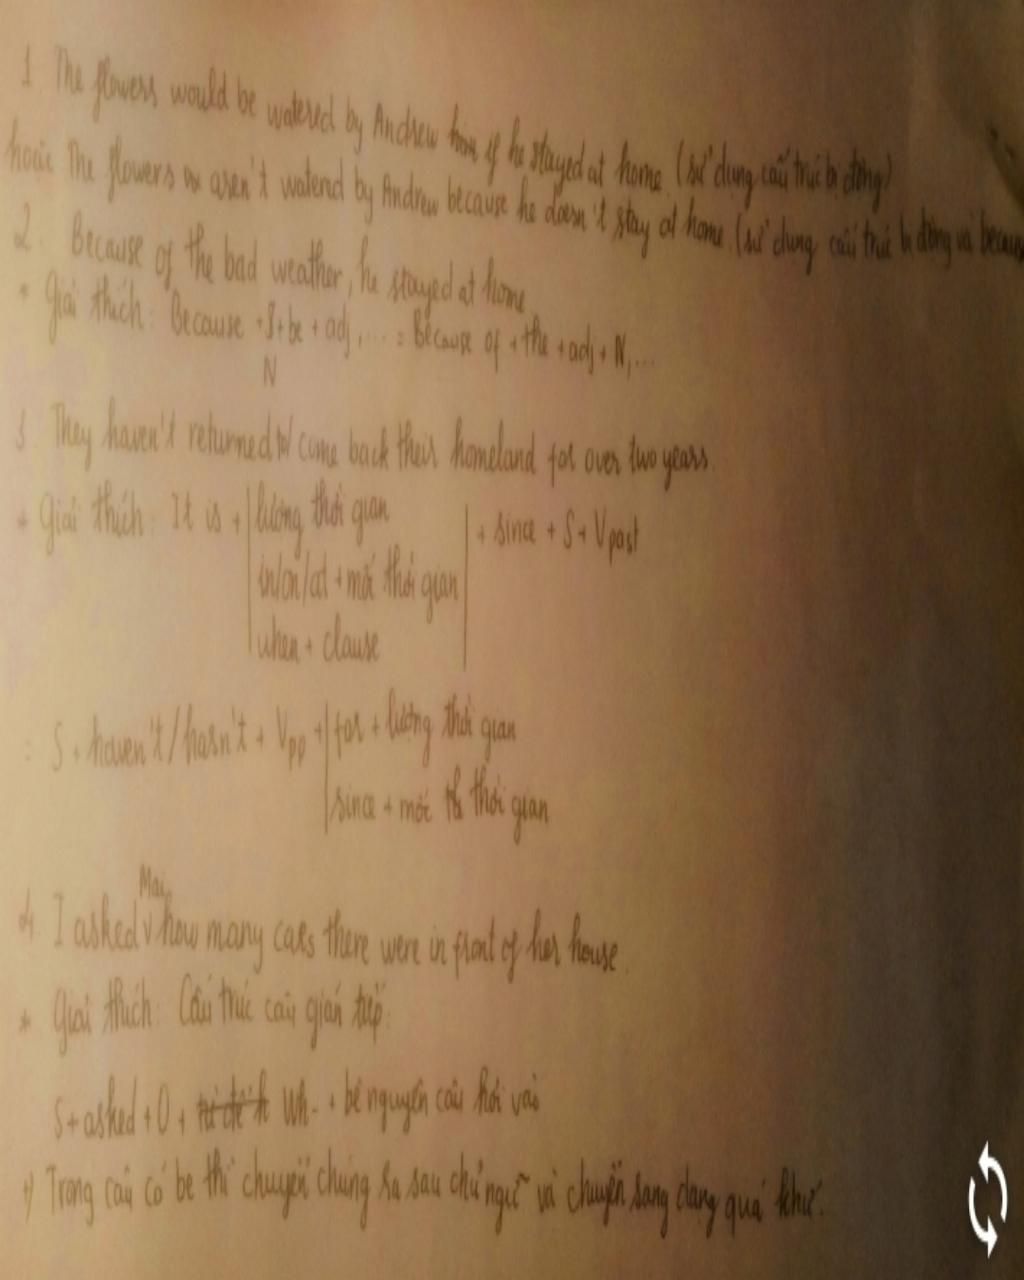 1 The flowers would be watered by Andrew if he stayed at home (sử dụng cấu trúc bị động)
hoặc The flowers aren't waterd by Andrew because he doesn't stay at home. (sử dụng cấu trúc bị động và because
2. Because of the bad weather, he stayed at home
* Giải thích: Because + S + be + adj, ... = Because of + the + adj + N, ...
N
3. They haven't returned to/ come back their homeland for over two years.
* Giải thích: It is + lượng thời gian
in/on/at + mốc thời gian + since + S + Vpast
when + clause
= S + haven't/hasn't + Vpp + for + lượng thời gian
since + mốc thời gian
Mai
4. I asked V how many cars there were in front of her house.
* Giải thích: Cấu trúc câu gián tiếp:
S + asked + O + Wh- + bê nguyên câu hỏi vào
Trong câu có be thì chuyển chúng ra sau chủ ngữ và chuyển sang dạng quá khứ.